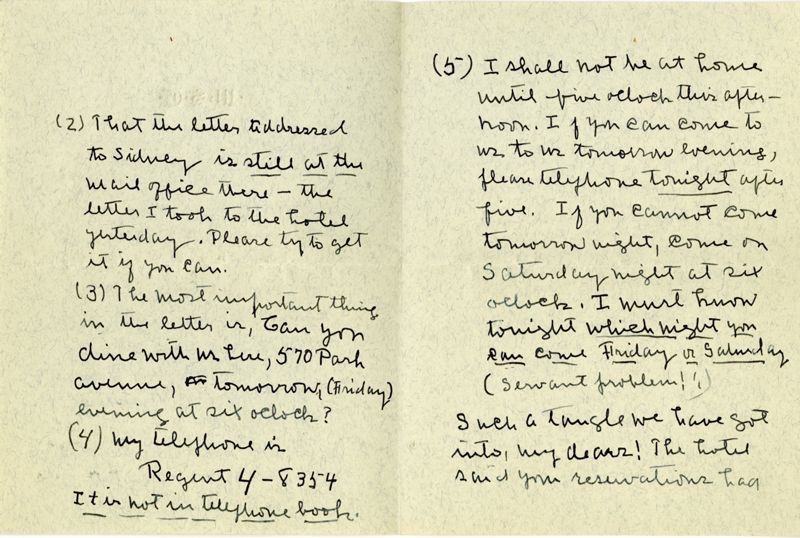 (2) That the letter addressed
to Sidney is still at the
mail office there – the
letter I took to the hotel
yesterday. Please try to get
it if you can.
(3) The most important thing
in the letter is, Can you
dine with us here, 570 Park
avenue, tomorrow, (Friday)
evening at six oclock?
(4) My telephone is
Regent 4-8354
It is not in telephone book.
(5) I shall not be at home
until five oclock this after-
noon. If you can come to
us to us tomorrow evening,
please telephone tonight after
five. If you cannot come
tomorrow night, come on
Saturday night at six
oclock. I must know
tonight which night you
can come Friday or Saturday
(Servant problem!!)
Such a tangle we have got
into, my dears! The hotel
said your reservations had